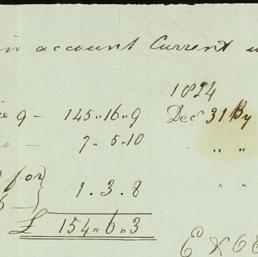 in account Current
1824
9 - 145 .. 16 .. 9 Decr 31 By
- 7 .. 5 .. 10 " "
for } 1 . 3 . 8 "
£ 154 .. 6 .. 3
E & O E